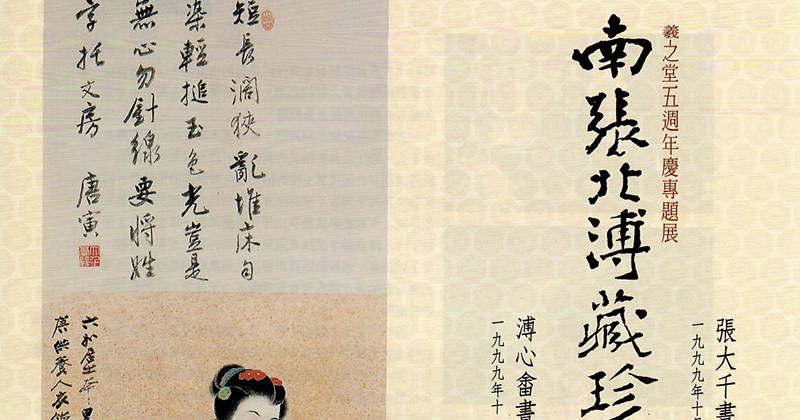 羲之堂五週年慶專題展
南張北溥藏珍
張大千書
一九九九年十
溥心畬書
一九九九年十
短長濶狹亂堆床勻
染輕搥玉色光豈是
無心勿針線要將姓
字托文房 唐寅